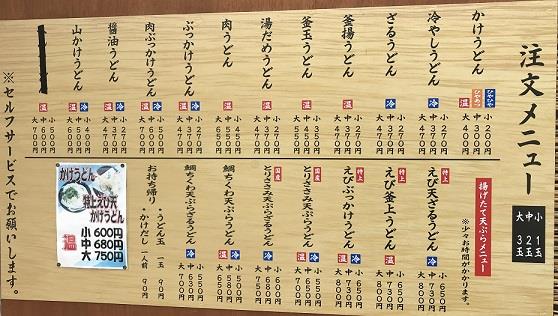 注文メニュー
小 1玉
中 2玉
大 3玉
かけうどん
ひやひや
ひやあつ
温
小 200円
中 300円
大 400円
冷やしうどん
冷
小 270円
中 370円
大 470円
ざるうどん
冷
小 270円
中 370円
大 470円
釜揚げうどん
温
小 270円
中 370円
大 470円
釜玉うどん
温
小 350円
中 450円
大 550円
湯だめうどん
温
小 270円
中 370円
大 470円
肉うどん
温
小 450円
中 550円
大 650円
ぶっかけうどん
温 冷
小 270円
中 370円
大 470円
肉ぶっかけうどん
温 冷
小 500円
中 600円
大 700円
醤油うどん
温 冷
小 270円
中 370円
大 470円
山かけうどん
温 冷
小 400円
中 500円
大 600円
温
小 500円
中 600円
大 700円
揚げたて天ぷらメニュー
※少々お時間がかかります。
特上
えび天ざるうどん
冷
小 650円
中 730円
大 800円
特上
えび釜上うどん
温
小 650円
中 730円
大 800円
特上
えびぶっかけうどん
温 冷
小 650円
中 730円
大 800円
国産
とりささみ天ぷらうどん
温
小 550円
中 630円
大 700円
国産
とりささみ天ざるうどん
冷
小 550円
中 630円
大 700円
鯛ちくわ天ぷらうどん
温
小 500円
中 580円
大 650円
鯛ちくわ天ぷらざるうどん
冷
小 550円
中 630円
大 700円
お持ち帰り
・うどん玉 一玉 90円
・かけだし 一人前 90円
かけうどん
特上えび天
かけうどん
温
小 600円
中 680円
大 750円
※セルフサービスでお願いします。